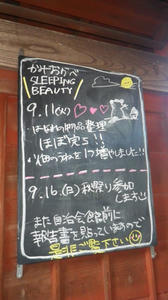 かみおかべ
SLEEPING
BEAUTY
9.11(火)
はなれの物品整理
ほぼ完了!!
・畑のうねを1つ増やしました!!
9.16(日)秋祭り参加
します
また自治会館前に
報告書を貼っていますので
是非ご覧下さい